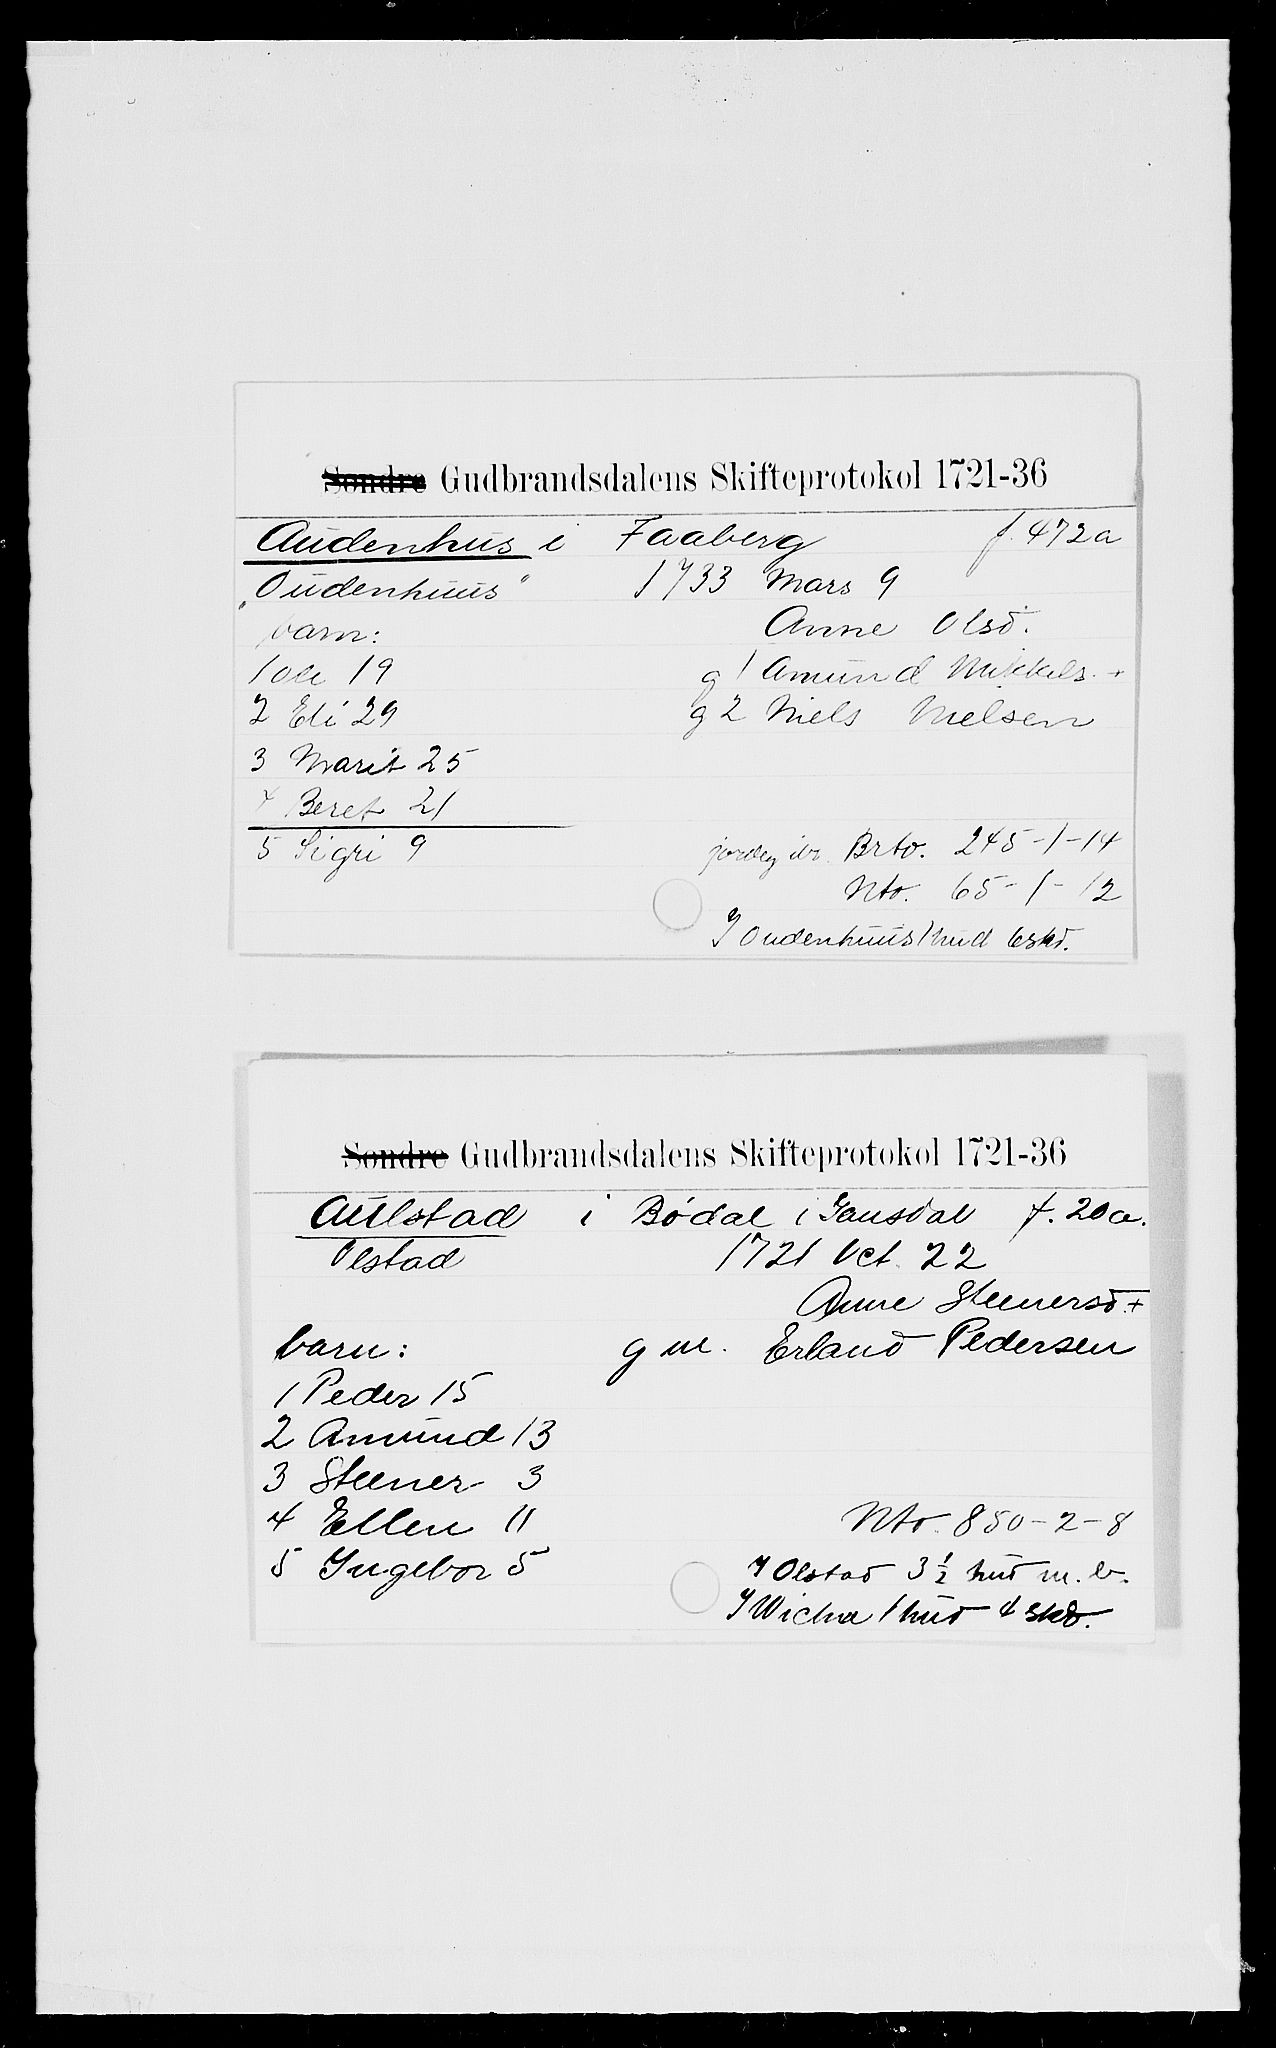 Søndre Gudbrandsdalens Skifteprotokol 1721-36
Audenhus i Faaberg f. 472a
"Oudenhuus" 1733 Mars 9
barn: Anne Olsd.
1 Ole 19 g 1 Amund Mikkels. +
2 Eli 29 g 2 Niels Nielsen
3 Marit 25
4 Beret 21
5 Sigri 9 Brto. 245-1-14
Nto. 65-1-12
I Oudenhuus 1 hud 6 skd.
Søndre Gudbrandsdalens Skifteprotokol 1721-36
Aulstad i Bødal i Gausdal f. 20a.
Olstad 1721 Oct. 22
Anne Steenersd. +
barn: g m. Erland Pedersen
1 Peder 15
2 Amund 13
3 Steener 3
4 Ellen 11 Nto. 850-2-8
5 Ingebor 5 I Olstad 3 ½ hud m. b.
I Wicha 1 hud 4 skd.